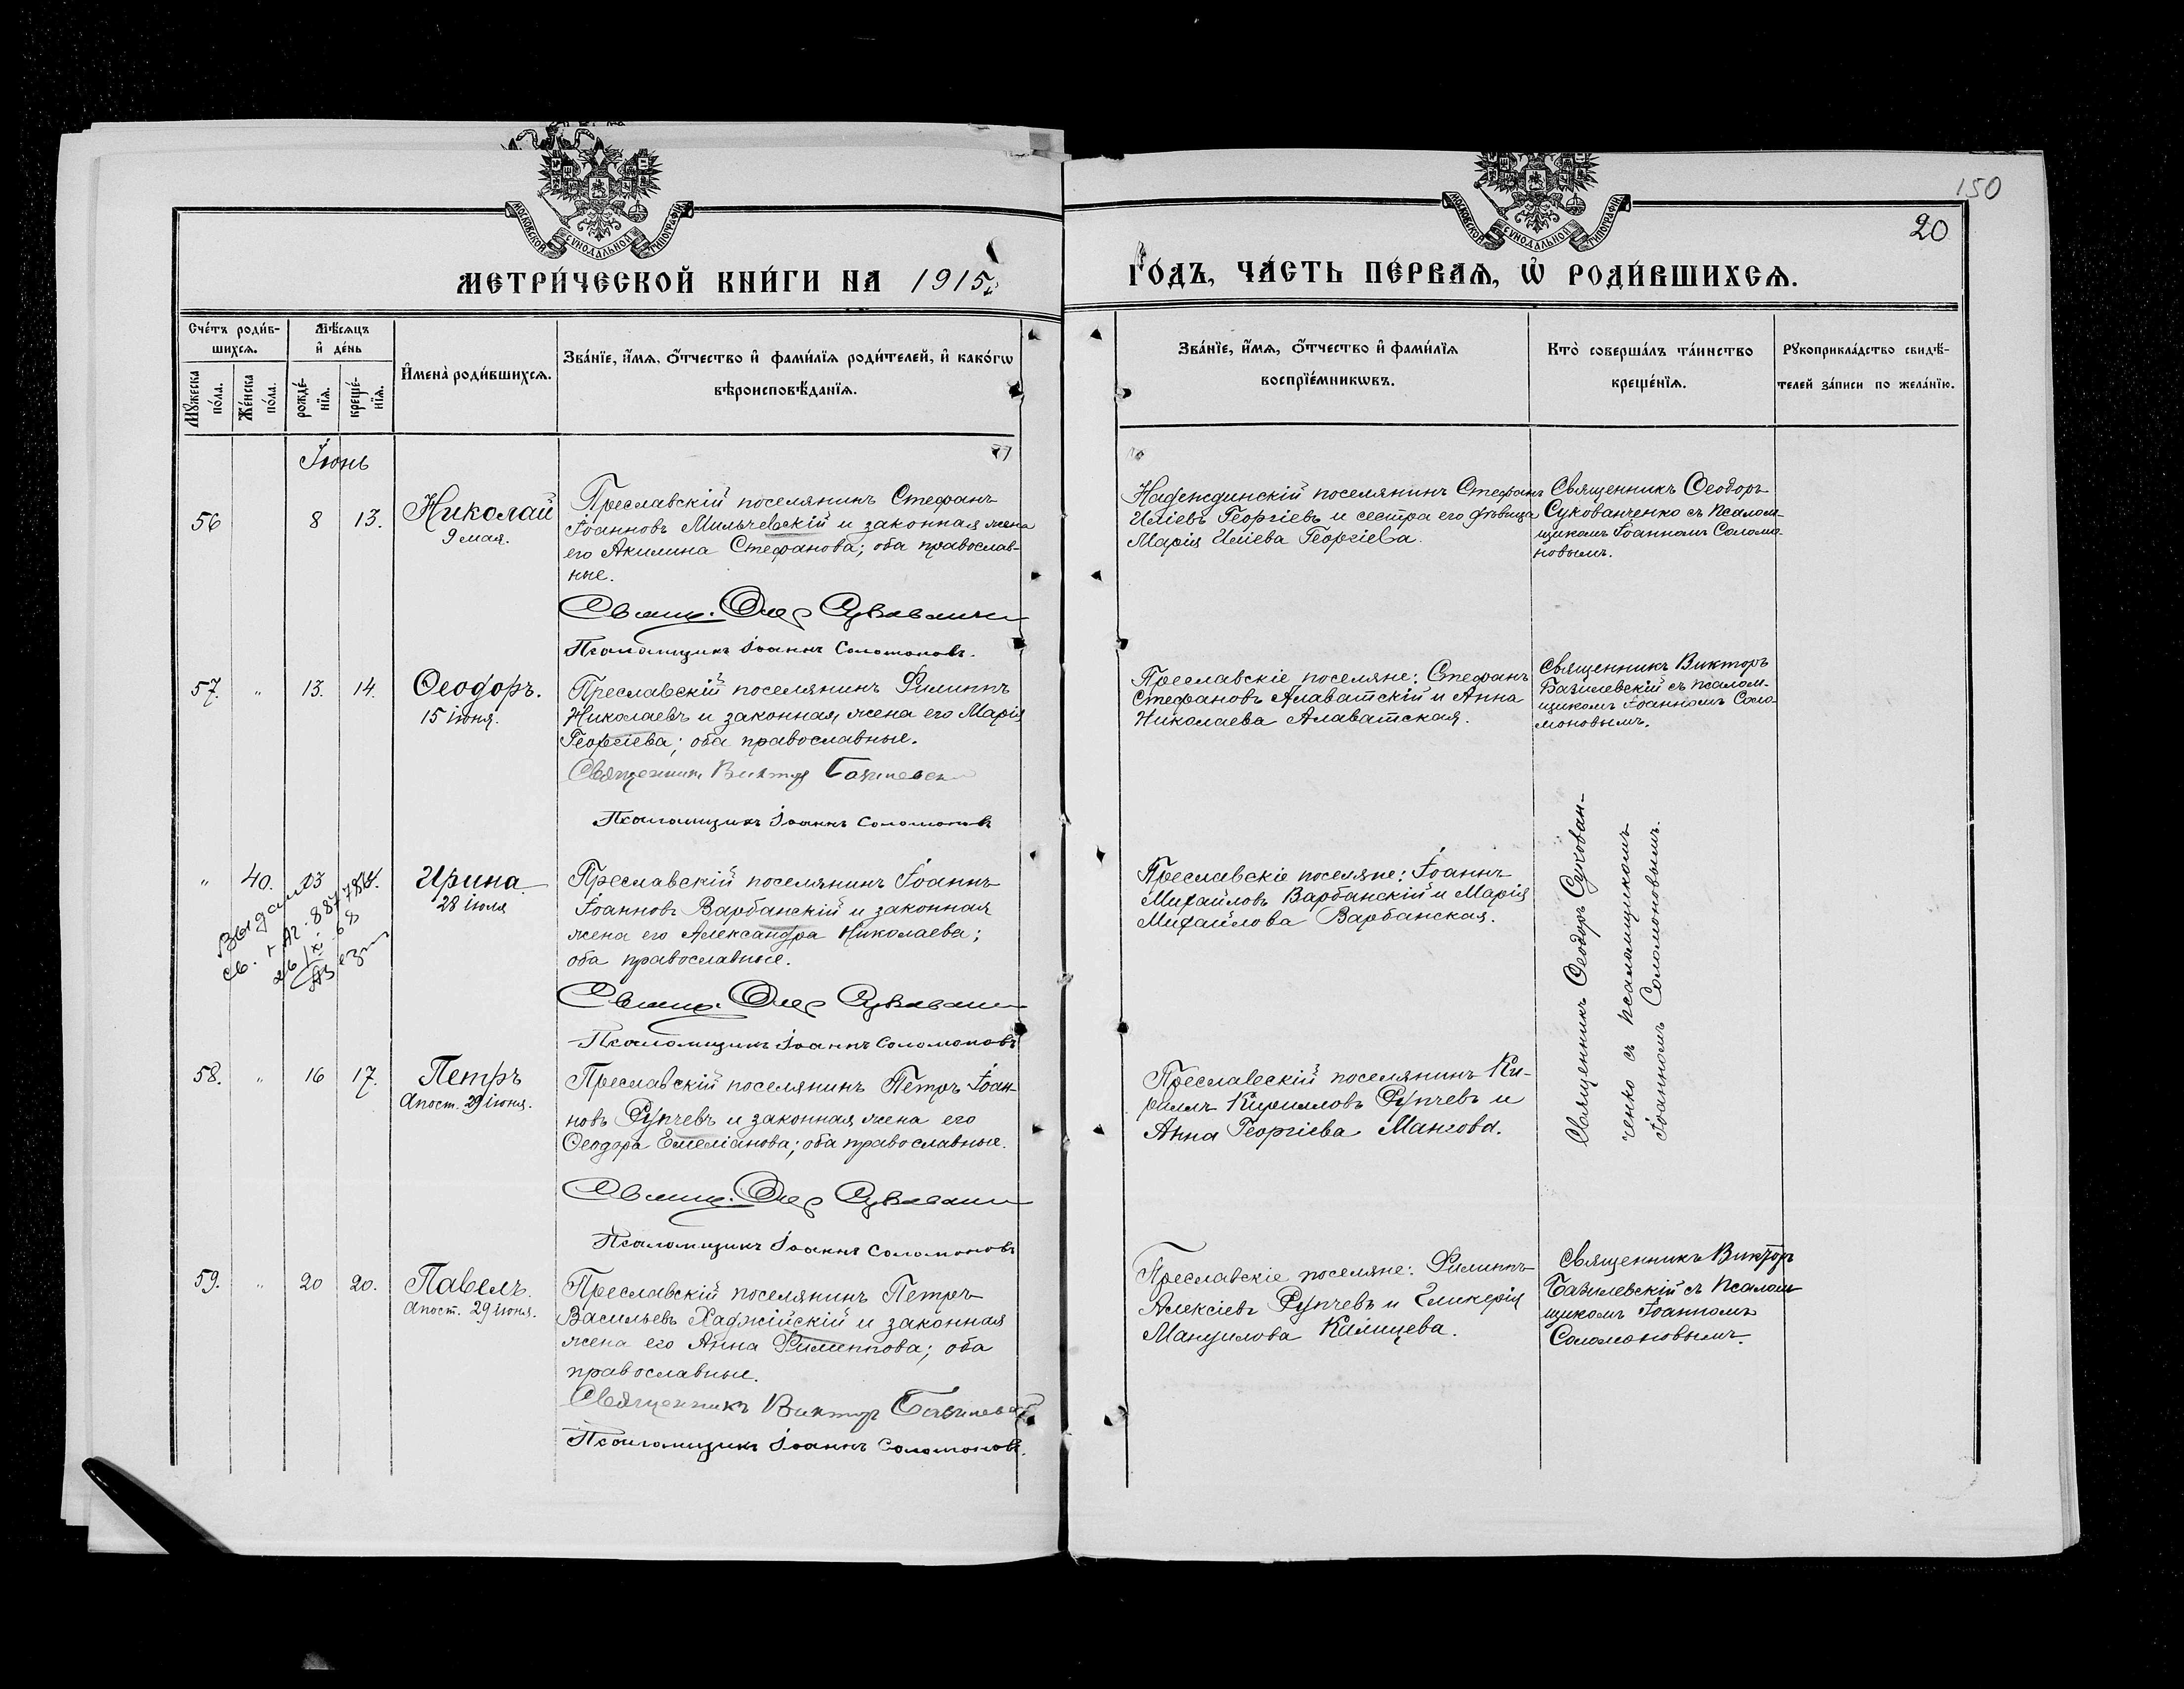 150
20
МОСКОВСКОЙ СУНОДАЛЬНОЙ ТИПОГРАФІИ
МОСКОВСКОЙ СУНОДАЛЬНОЙ ТИПОГРАФІИ
МЕТРИ́ЧЕСКОЙ КНИ́ГИ НА 1915
ГО́ДЪ, ЧА́СТЬ ПЕ́РВАѦ, Ѡ҆ РОДИ́ВШИХСѦ.
Сче́тъ роди́в-
шихсѧ.
Мꙋ́жеска по́ла.
Же́нска по́ла.
Мѣ́сѧцъ
и҆ де́нь
рожде́-
нїѧ.
креще́-
нїѧ.
И҆мена̀ роди́вшихсѧ.
Зва́нїе, и҆́мѧ, ѻ҆́тчество и҆ фами́лїѧ роди́телей, и҆ како́гѡ
вѣроисповѣ́данїѧ.
Зва́нїе, и҆́мѧ, ѻ҆́тчество и҆ фами́лїѧ
воспрїе́мникѡвъ.
Кто̀ соверша́лъ та́инство
креще́нїѧ.
Рꙋкоприкла́дство свидѣ́-
телей за́писи по жела́нїю.
Іюнь
56 8 13.
Николай
9 мая.
Преславскій поселянинъ Стефанъ
Іоанновъ Мильчевскій и законная жена
его Акилина Стефанова; оба православ-
ные.
Псаломщикъ Іоаннъ Соломоновъ.
Надеждинскій поселянинъ Стефанъ
Иліевъ Георгіевъ и сестра его дѣвица
Марія Иліева Георгіева.
Священникъ Ѳеодоръ
Сукованченко съ псалом-
щикомъ Іоанномъ Соломо-
новымъ.
57. " 13. 14.
Ѳеодоръ.
15 іюня.
Преславскій поселянинъ Филиппъ
Николаевъ и законная жена его Марія
Георгіева; оба православные.
Священникъ Викторъ
Псаломщикъ Іоаннъ Соломоновъ
Преславскіе поселяне: Стефанъ
Стефановъ Алаватскій и Анна
Николаева Алаватская.
Священникъ Викторъ
Базилевскій съ псалом-
щикомъ Іоанномъ Соло-
моновымъ.
" 40. 13
Ирина
28 іюля
Преславскій поселянинъ Іоаннъ
Іоанновъ Варбанскій и законная
жена его Александра Николаева;
оба православные.
Псаломщикъ Іоаннъ Соломоновъ
Преславскіе поселяне: Іоаннъ
Михайловъ Варбанскій и Марія
Михайлова Варбанская.
Священникъ Ѳеодоръ Сукован-
ченко съ псаломщикомъ
Іоанномъ Соломоновымъ.
58. " 16 17.
Петръ
Апост. 29 іюня.
Преславскій поселянинъ Петръ Іоан-
новъ Рупчевъ и законная жена его
Ѳеодора Емеліанова; оба православные.
Псаломщикъ Іоаннъ Соломоновъ
Преславскій поселянинъ Ки-
риллъ Кирилловъ Рупчевъ и
Анна Георгіева Мангова.
59. " 20 20.
Павелъ.
Апост. 29 іюня.
Преславскій поселянинъ Петръ
Васильевъ Хаджійскій и законная
жена его Анна Филиппова; оба
православные.
Священникъ Викторъ
Псаломщикъ Іоаннъ Соломоновъ.
Преславскіе поселяне: Филиппъ
Алексіевъ Рупчевъ и Гликерія
Мануилова
Священникъ Викторъ
Базилевскій съ псалом-
щикомъ Іоанномъ
Соломоновымъ.